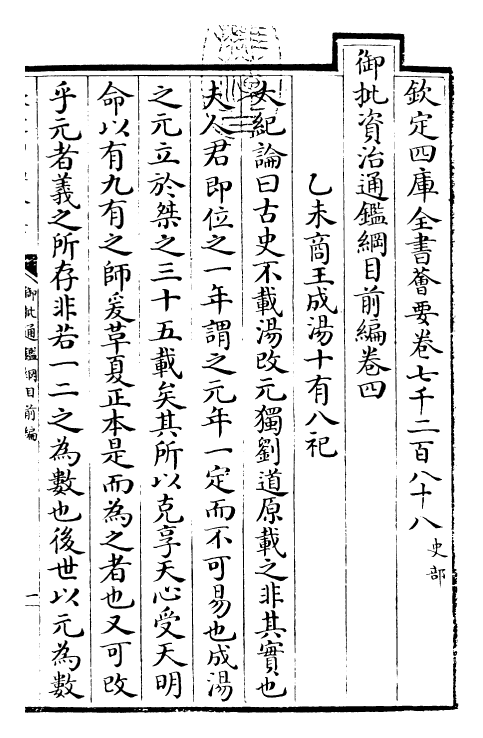 欽定四庫全書薈要卷七千二百八十八 史部
御批資治通鑑綱目前編卷四
乙未商王成湯十有八祀
大紀論曰古史不載湯改元獨劉道原載之非其實也
夫人君即位之一年謂之元年一定而不可易也成湯
之元立於桀之三十五載矣其所以克享天心受天明
命以有九有之師爰革夏正本是而為之者也又可改
乎元者義之所存非若一二之為數也後世以元為數
御批通鑑綱目前編
一